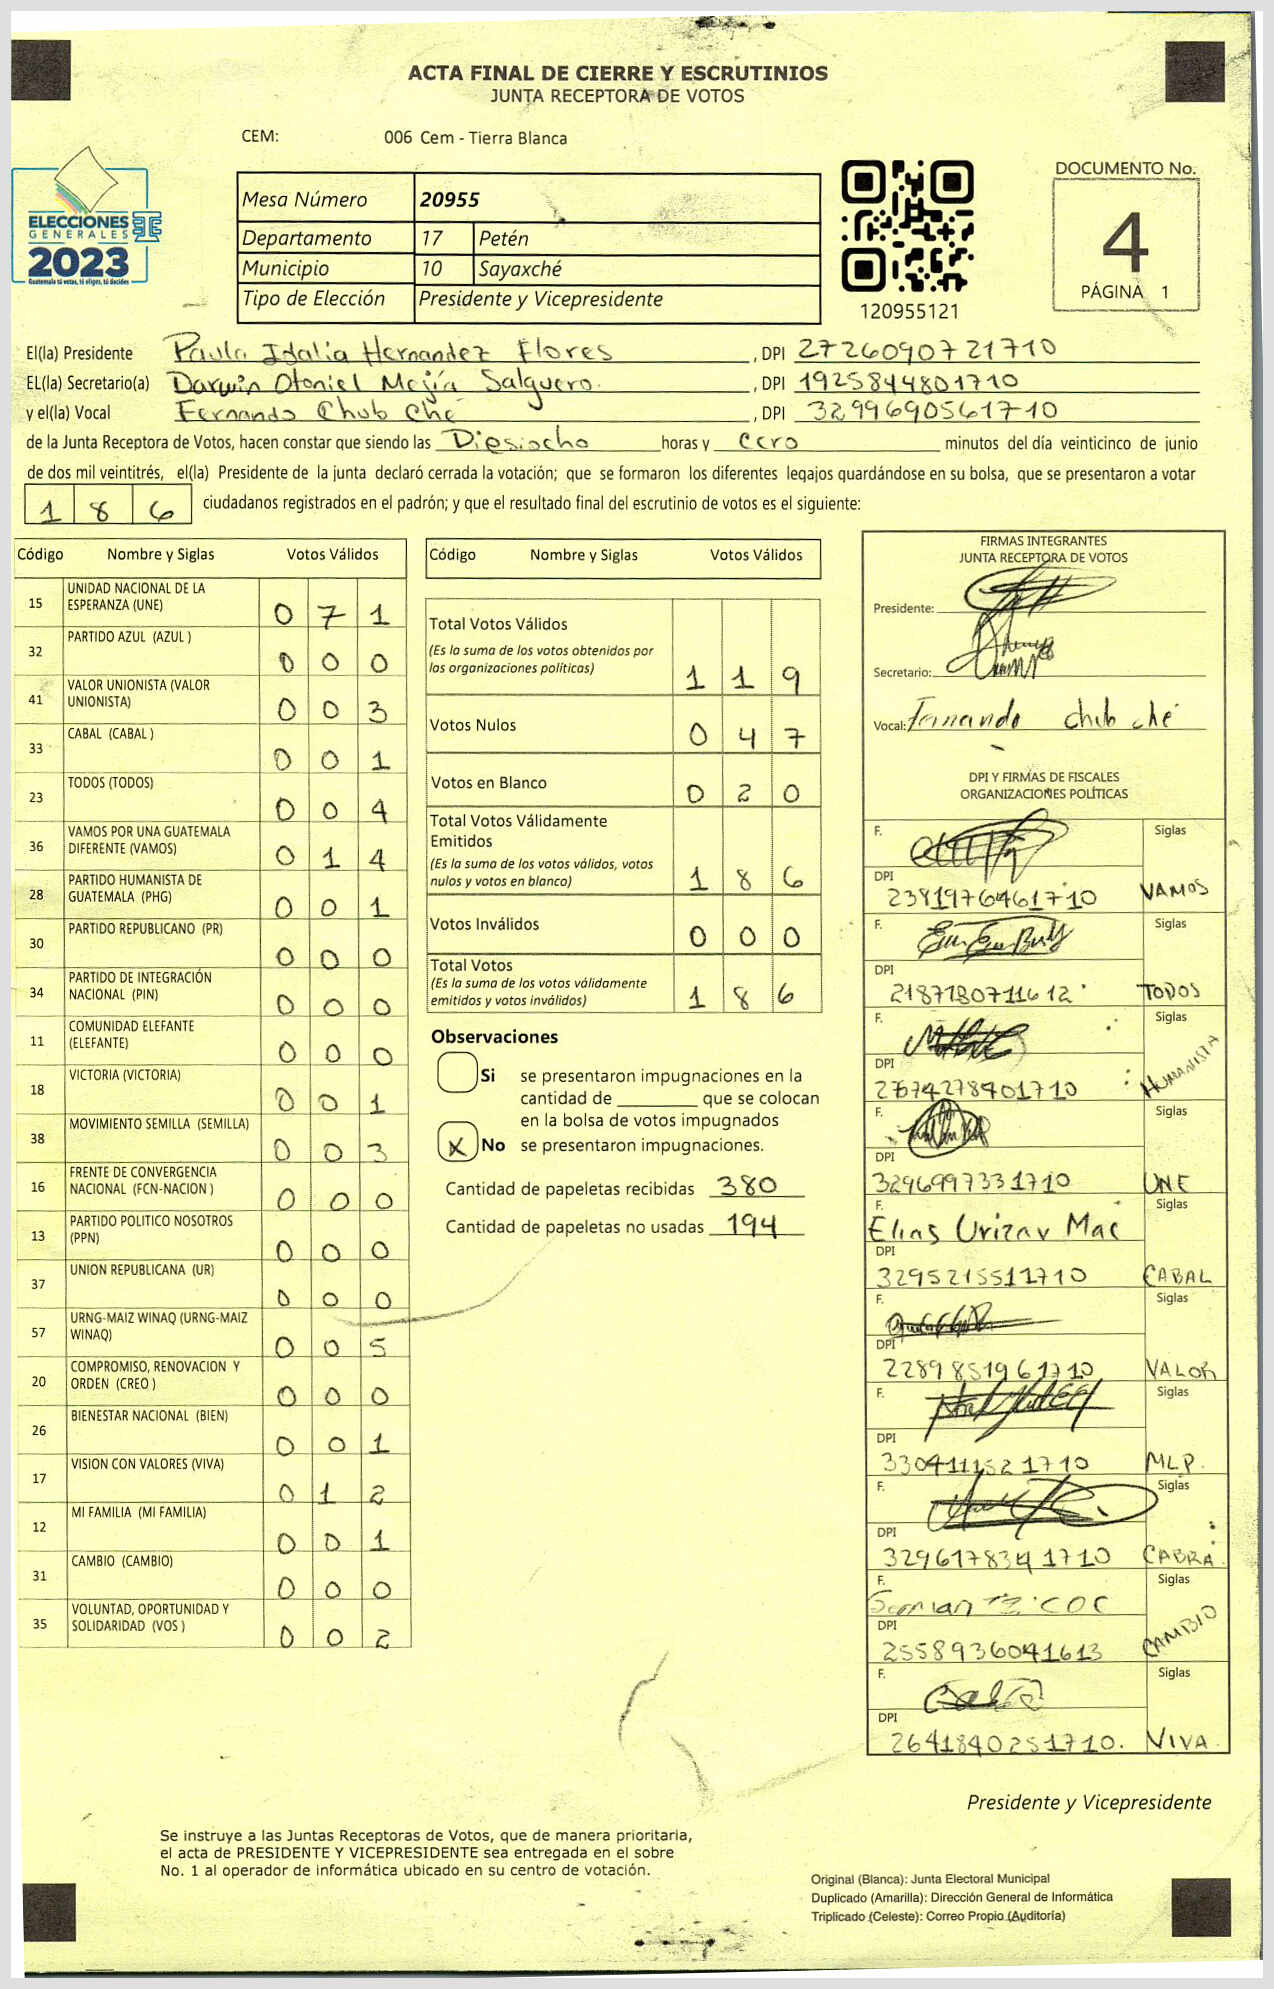 ACTA FINAL DE CIERRE Y ESCRUTINIOS
JUNTA RECEPTORA DE VOTOS
CEM: 006 Cem - Tierra Blanca
ELECCIONES
GENERALES
2023
Guatemala tú votas, tú eliges, tú decides
Mesa Número 20955
Departamento 17 Petén
Municipio 10 Sayaxché
Tipo de Elección Presidente y Vicepresidente
120955121
DOCUMENTO No.
4
PÁGINA 1
El(la) Presidente Paula Idalia Hernandez Flores, DPI 2726090721710
EL(la) Secretario(a) Darwin Otoniel Mejía Salguero., DPI 1925844801710
y el(la) Vocal Fernando Chub Ché, DPI 3299690561710
de la Junta Receptora de Votos, hacen constar que siendo las Diesiocho horas y cero minutos del día veinticinco de junio
de dos mil veintitrés, el(la) Presidente de la junta declaró cerrada la votación; que se formaron los diferentes legajos guardándose en su bolsa, que se presentaron a votar
186 ciudadanos registrados en el padrón; y que el resultado final del escrutinio de votos es el siguiente:
Código Nombre y Siglas Votos Válidos
15 UNIDAD NACIONAL DE LA
ESPERANZA (UNE) 0 7 1
32 PARTIDO AZUL (AZUL ) 0 0 0
41 VALOR UNIONISTA (VALOR
UNIONISTA) 0 0 3
33 CABAL (CABAL ) 0 0 1
23 TODOS (TODOS) 0 0 4
36 VAMOS POR UNA GUATEMALA
DIFERENTE (VAMOS) 0 1 4
28 PARTIDO HUMANISTA DE
GUATEMALA (PHG) 0 0 1
30 PARTIDO REPUBLICANO (PR) 0 0 0
34 PARTIDO DE INTEGRACIÓN
NACIONAL (PIN) 0 0 0
11 COMUNIDAD ELEFANTE
(ELEFANTE) 0 0 0
18 VICTORIA (VICTORIA) 0 0 1
38 MOVIMIENTO SEMILLA (SEMILLA) 0 0 3
16 FRENTE DE CONVERGENCIA
NACIONAL (FCN-NACION ) 0 0 0
13 PARTIDO POLITICO NOSOTROS
(PPN) 0 0 0
37 UNION REPUBLICANA (UR) 0 0 0
57 URNG-MAIZ WINAQ (URNG-MAIZ
WINAQ) 0 0 5
20 COMPROMISO, RENOVACION Y
ORDEN (CREO ) 0 0 0
26 BIENESTAR NACIONAL (BIEN) 0 0 1
17 VISION CON VALORES (VIVA) 0 1 2
12 MI FAMILIA (MI FAMILIA) 0 0 1
31 CAMBIO (CAMBIO) 0 0 0
35 VOLUNTAD, OPORTUNIDAD Y
SOLIDARIDAD (VOS ) 0 0 2
Código Nombre y Siglas Votos Válidos
Total Votos Válidos
(Es la suma de los votos obtenidos por
las organizaciones políticas) 1 1 9
Votos Nulos 0 4 7
Votos en Blanco 0 2 0
Total Votos Válidamente
Emitidos
(Es la suma de los votos válidos, votos
nulos y votos en blanco) 1 8 6
Votos Inválidos 0 0 0
Total Votos
(Es la suma de los votos válidamente
emitidos y votos inválidos) 1 8 6
Observaciones
Si se presentaron impugnaciones en la
cantidad de ________ que se colocan
en la bolsa de votos impugnados
X No se presentaron impugnaciones.
Cantidad de papeletas recibidas 380
Cantidad de papeletas no usadas 194
FIRMAS INTEGRANTES
JUNTA RECEPTORA DE VOTOS
Presidente:
Secretario:
Vocal: Fernando chub ché
DPI Y FIRMAS DE FISCALES
ORGANIZACIONES POLÍTICAS
F. Siglas
DPI
2381976461710 VAMOS
F. Siglas
DPI
2187780711612 TODOS
F. Siglas
DPI
27674278401710 HUMANISTA
F. Siglas
DPI
3296997331710 UNE
F. Siglas
Elias Urizar Mac
DPI
3295215511710 CABAL
F. Siglas
DPI
2289851961710 VALOR
F. Siglas
DPI
3304111521710 MLP.
F. Siglas
DPI
3296178341710 CABRA.
F. Siglas
DPI
2558936041613 CAMBIO
F. Siglas
DPI
2641840251710. VIVA.
Presidente y Vicepresidente
Se instruye a las Juntas Receptoras de Votos, que de manera prioritaria,
el acta de PRESIDENTE Y VICEPRESIDENTE sea entregada en el sobre
No. 1 al operador de informática ubicado en su centro de votación.
Original (Blanca): Junta Electoral Municipal
Duplicado (Amarilla): Dirección General de Informática
Triplicado (Celeste): Correo Propio (Auditoría)